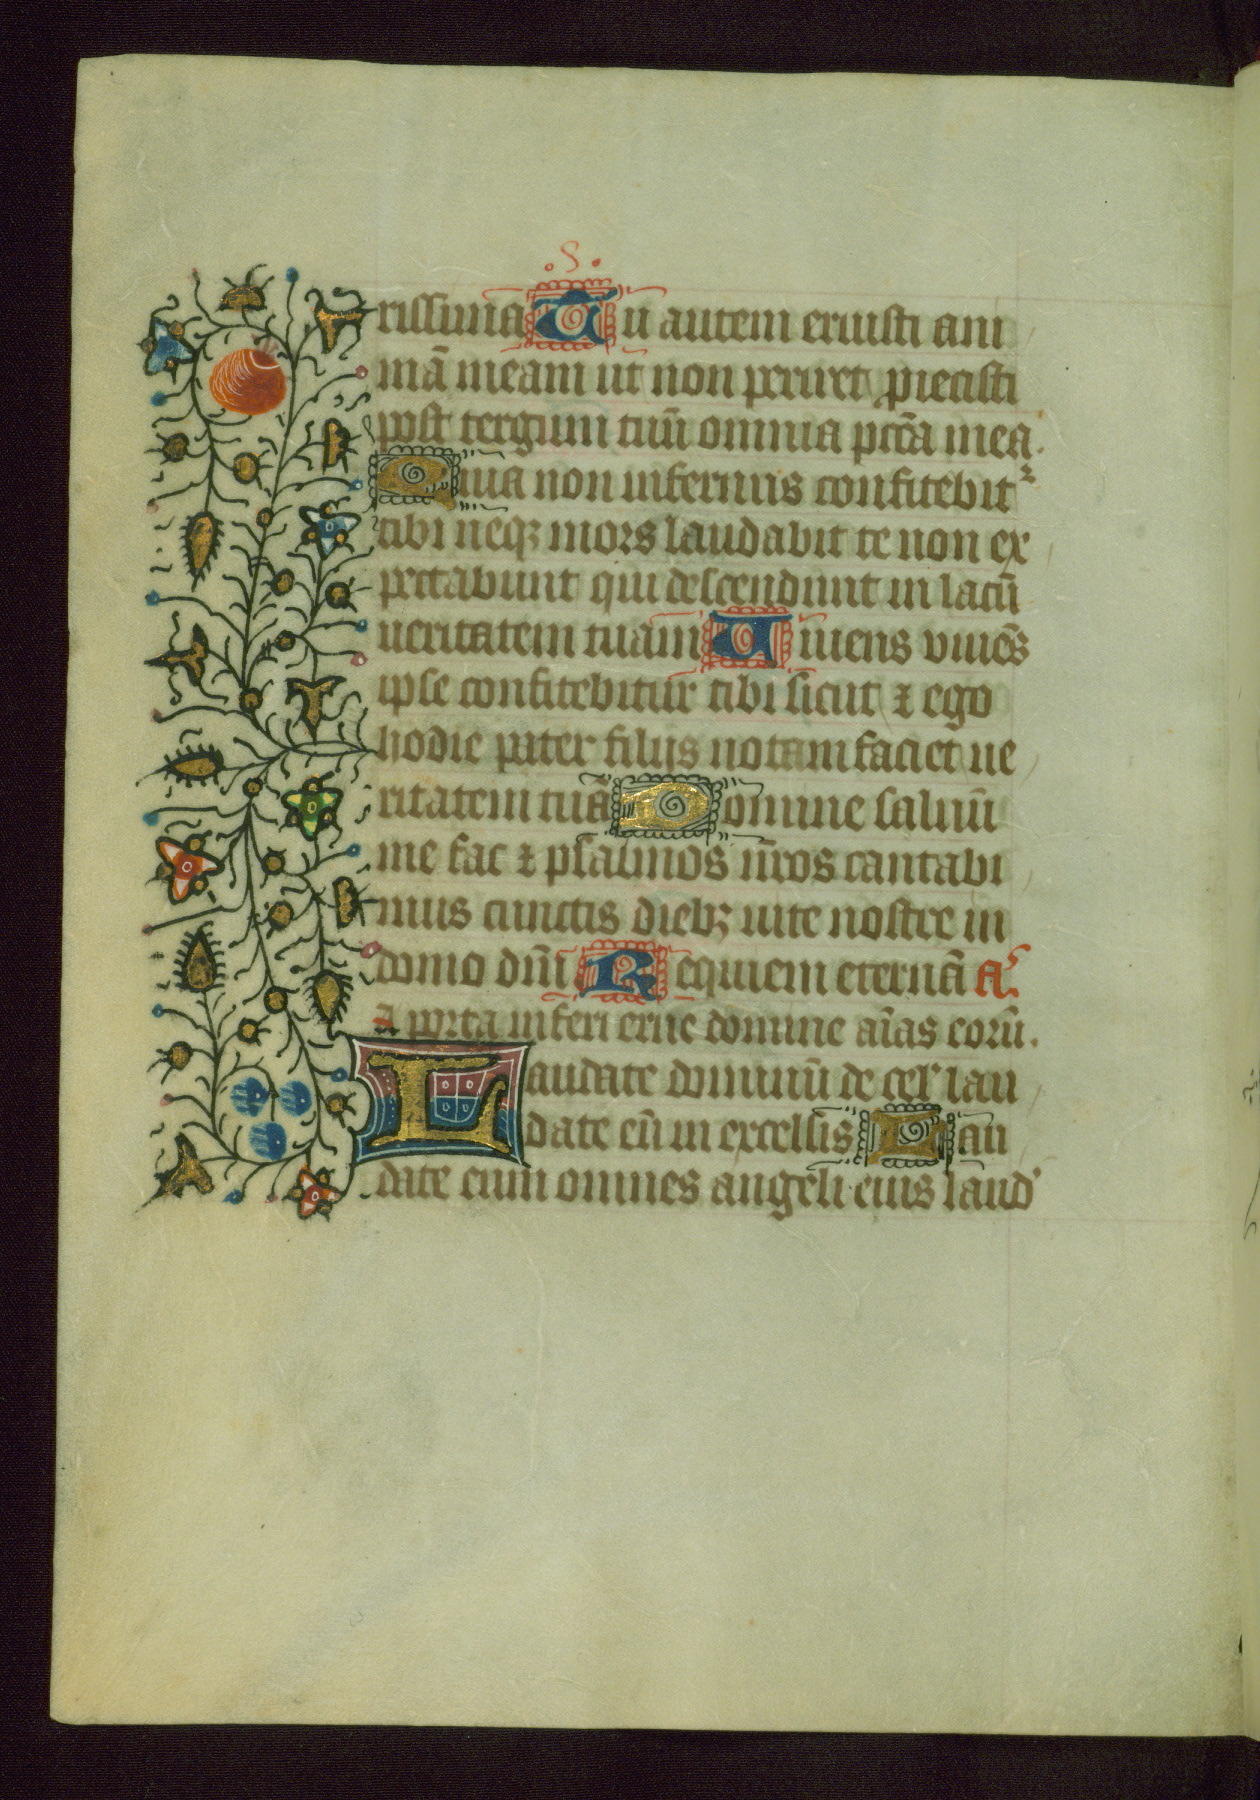 .S.
rissima Tu autem eruisti ani
mā meam ut non periret proiecisti
post tergum tuū omnia pctā mea.
Quia non infernus confitebit᷑
tibi neqꝫ mors laudabit te non ex
pectabunt qui descendunt in lacū
ueritatem tuam Uiuens viuēs
ipse confitebitur tibi sicut ⁊ ego
hodie pater filijs notam faciet ue
ritatem tuā Domine saluū
me fac ⁊ psalmos nr̄os cantabi
mus cunctis diebꝫ uite nostre in
domo dn̄i Requiem eternā A.
A porta inferi erue domine aīas eorū.
Laudate dominū de cel' lau
date eū in excelsis Lau
date eum omnes angeli eius laud'